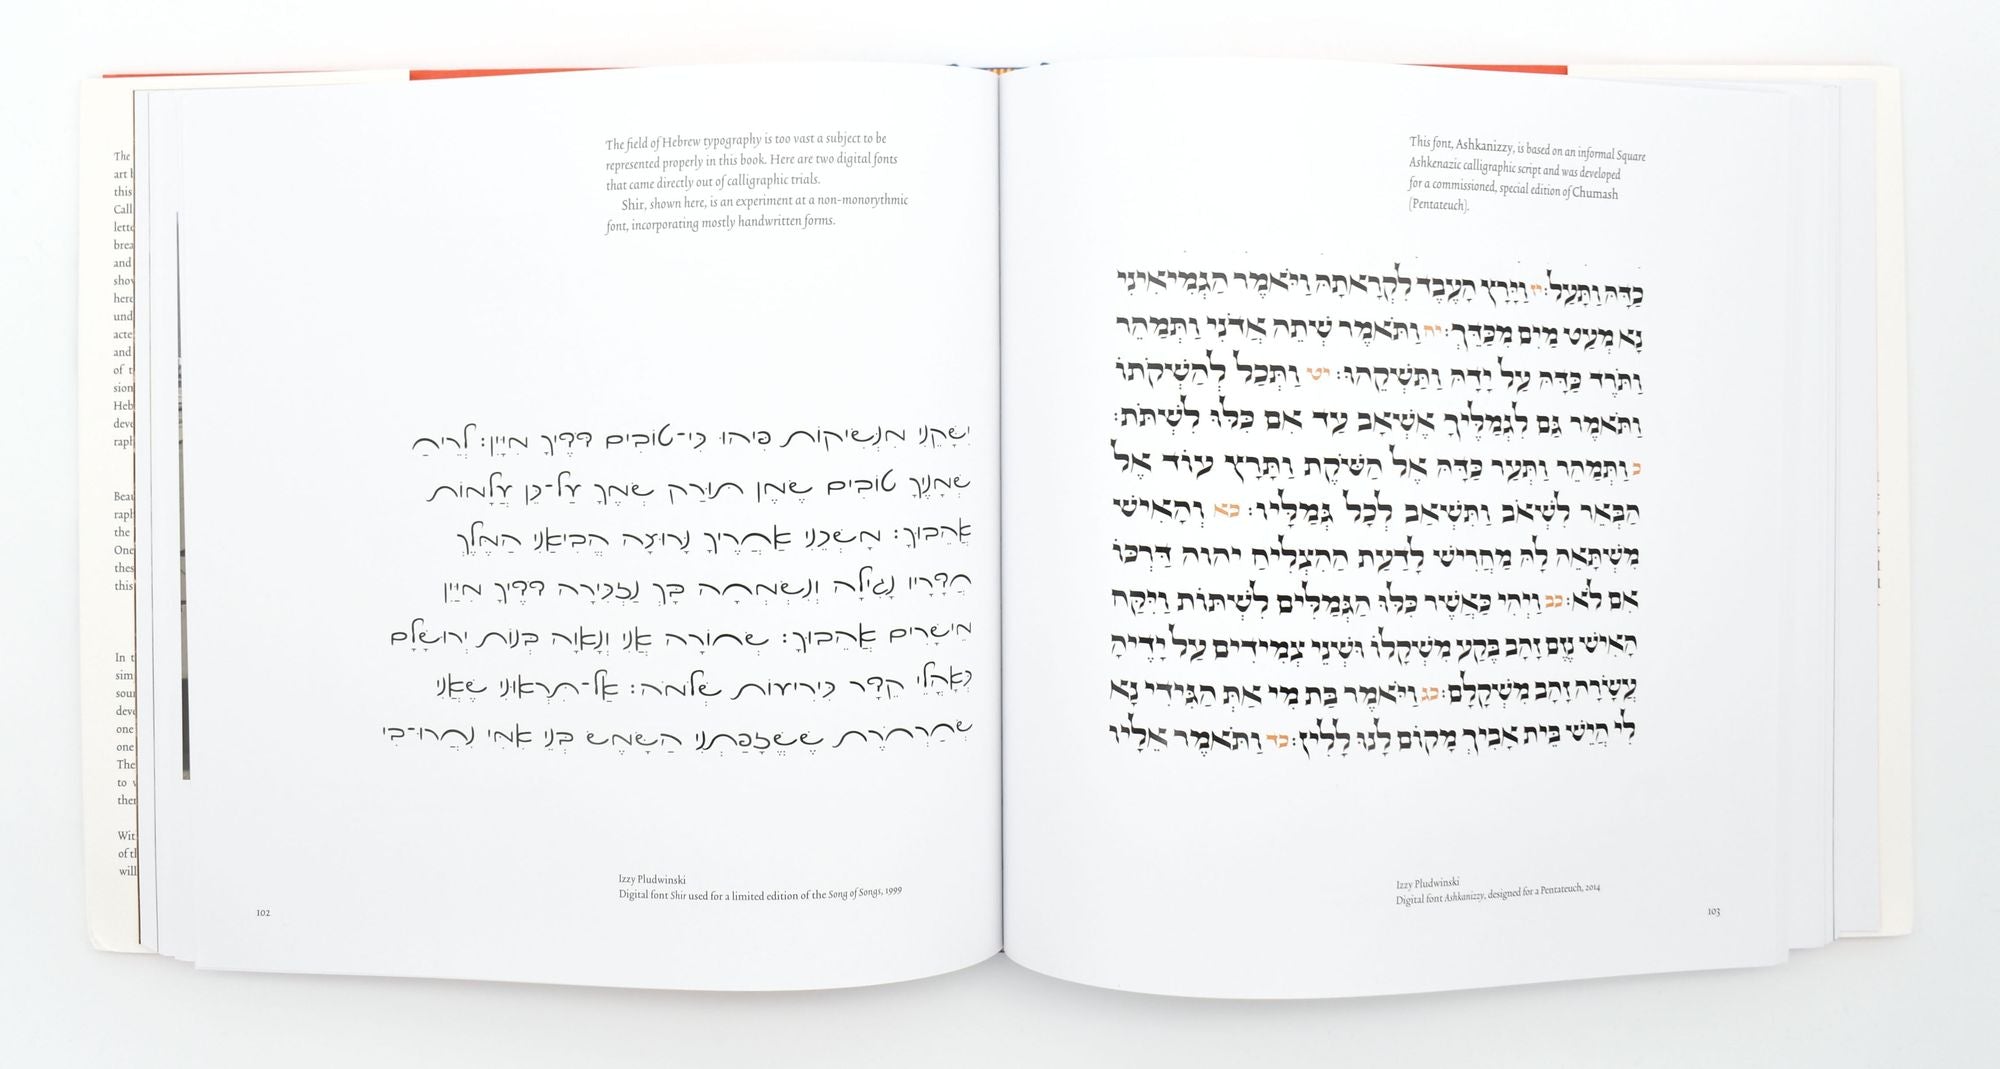 The
art b
this
Call
lette
brea
and
shov
here
und
acte
and
of t
sion
Heb
deve
raph
Beau
raph
the
One
thes
this
In t
sim
sour
deve
one
one
The
to v
then
Wit
of th
will
The field of Hebrew typography is too vast a subject to be
represented properly in this book. Here are two digital fonts
that came directly out of calligraphic trials.
Shir, shown here, is an experiment at a non-monorythmic
font, incorporating mostly handwritten forms.
יִשָּׁקֵנִי מִנְּשִׁיקוֹת פִּיהוּ כִּי־טוֹבִים דֹּדֶיךָ מִיָּיִן: לְרֵיחַ
שְׁמָנֶיךָ טוֹבִים שֶׁמֶן תּוּרַק שְׁמֶךָ עַל־כֵּן עֲלָמוֹת
אֲהֵבוּךָ: מָשְׁכֵנִי אַחֲרֶיךָ נָּרוּצָה הֱבִיאַנִי הַמֶּלֶךְ
חֲדָרָיו נָגִילָה וְנִשְׂמְחָה בָּךְ נַזְכִּירָה דֹדֶיךָ מִיַּיִן
מֵישָׁרִים אֲהֵבוּךָ: שְׁחוֹרָה אֲנִי וְנָאוָה בְּנוֹת יְרוּשָׁלִָם
כְּאָהֳלֵי קֵדָר כִּירִיעוֹת שְׁלֹמֹה: אַל־תִּרְאוּנִי שֶׁאֲנִי
שְׁחַרְחֹרֶת שֶׁשֱּׁזָפַתְנִי הַשָּׁמֶשׁ בְּנֵי אִמִּי נִחֲרוּ־בִי
Izzy Pludwinski
Digital font Shir used for a limited edition of the Song of Songs, 1999
102
This font, Ashkanizzy, is based on an informal Square
Ashkenazic calligraphic script and was developed
for a commissioned, special edition of Chumash
(Pentateuch).
כַדָּהּ וַתָּעַל: יז וַיָּרָץ הָעֶבֶד לִקְרָאתָהּ וַיֹּאמֶר הַגְמִיאִינִי
נָא מְעַט מַיִם מִכַּדֵּךְ: יח וַתֹּאמֶר שְׁתֵה אֲדֹנִי וַתְּמַהֵר
וַתֹּרֶד כַּדָּהּ עַל יָדָהּ וַתַּשְׁקֵהוּ: יט וַתְּכַל לְהַשְׁקֹתוֹ
וַתֹּאמֶר גַּם לִגְמַלֶּיךָ אֶשְׁאָב עַד אִם כִּלּוּ לִשְׁתֹּת:
כ וַתְּמַהֵר וַתְּעַר כַּדָּהּ אֶל הַשֹּׁקֶת וַתָּרָץ עוֹד אֶל
הַבְּאֵר לִשְׁאֹב וַתִּשְׁאַב לְכָל גְּמַלָּיו: כא וְהָאִישׁ
מִשְׁתָּאֵה לָהּ מַחֲרִישׁ לָדַעַת הַהִצְלִיחַ יהוה דַּרְכּוֹ
אִם לֹא: כב וַיְהִי כַּאֲשֶׁר כִּלּוּ הַגְּמַלִּים לִשְׁתּוֹת וַיִּקַּח
הָאִישׁ נֶזֶם זָהָב בֶּקַע מִשְׁקָלוֹ וּשְׁנֵי צְמִידִים עַל יָדֶיהָ
עֲשָׂרָה זָהָב מִשְׁקָלָם: כג וַיֹּאמֶר בַּת מִי אַתְּ הַגִּידִי נָא
לִי הֲיֵשׁ בֵּית אָבִיךְ מָקוֹם לָנוּ לָלִין: כד וַתֹּאמֶר אֵלָיו
Izzy Pludwinski
Digital font Ashkanizzy, designed for a Pentateuch, 2014
103